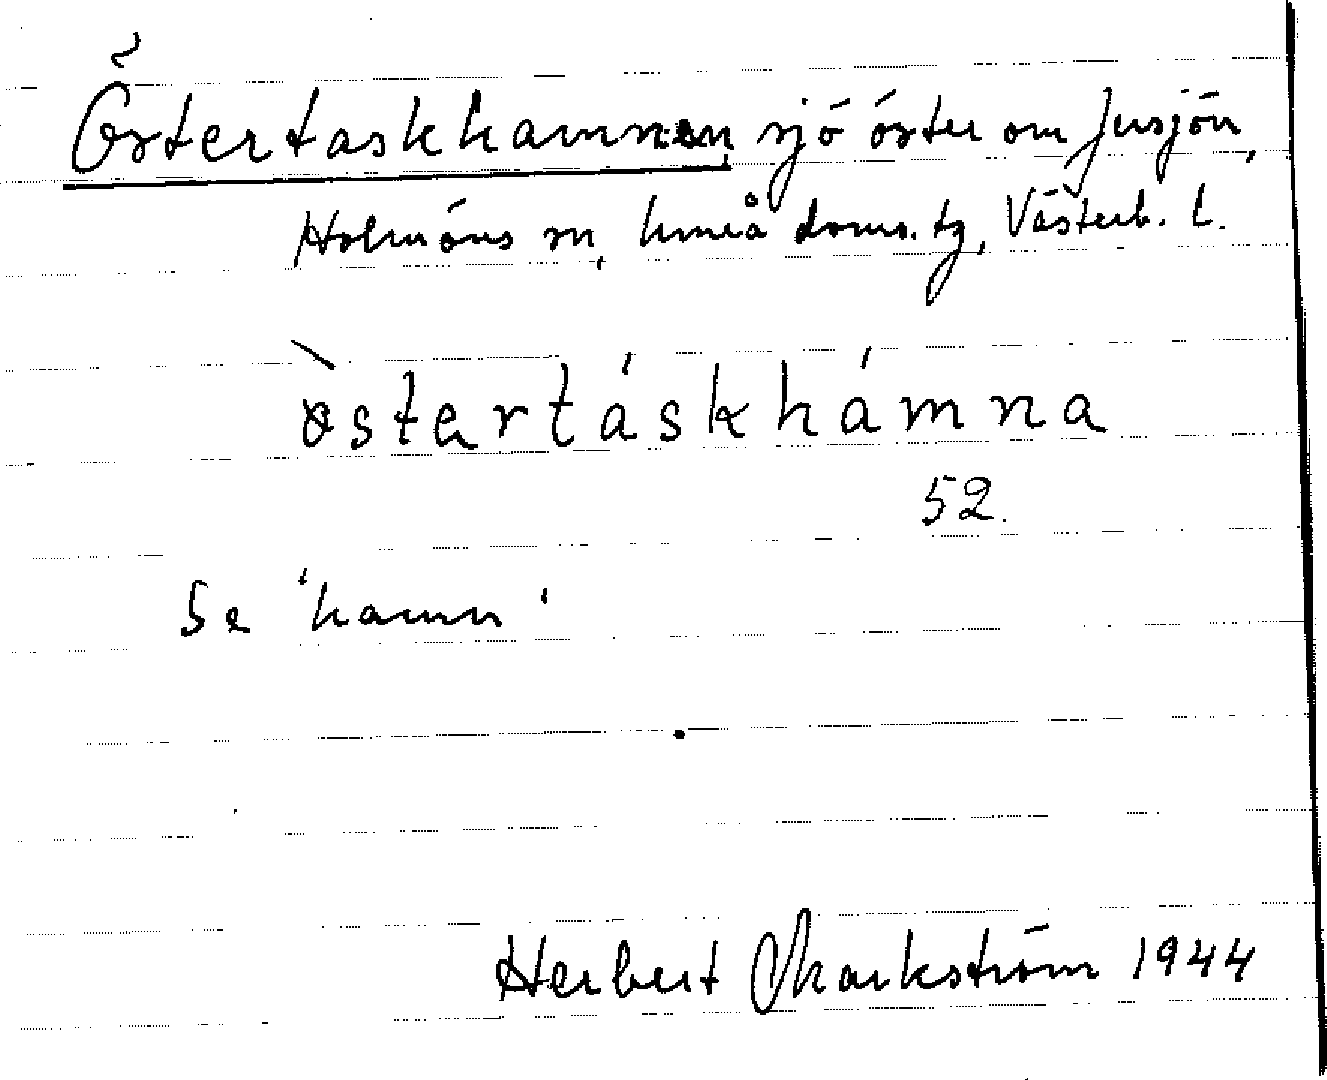 Östertaskhamnen, sjö öster om Jusjön,
Holmöns sn, Umeå doms. tg, Västerb. l.
östertáskhámna
52.
Se 'hamn'
Herbert Markström 1944